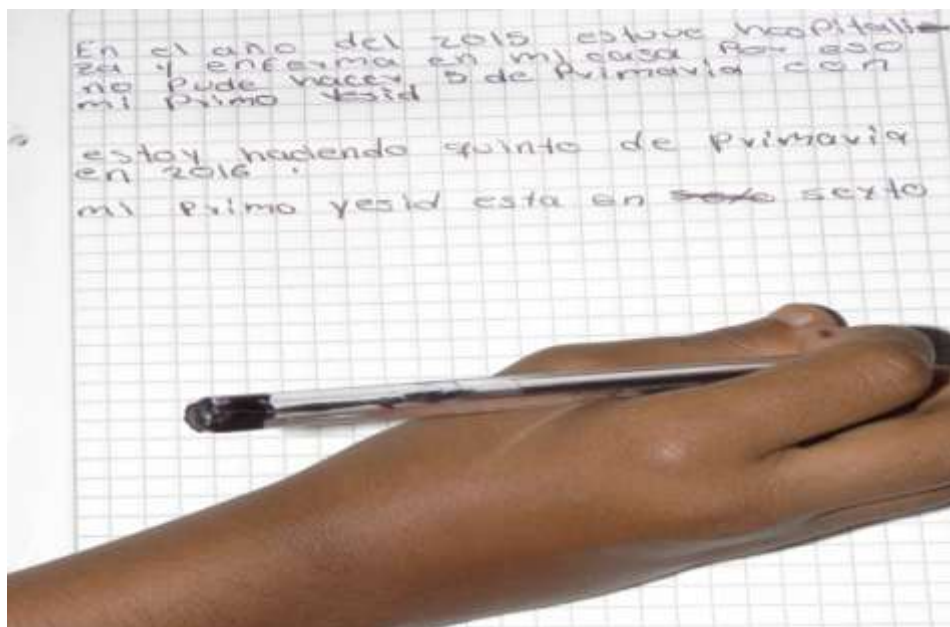 En el año del 2015 estuve hospitali
za y enferma en mi casa Por eso
no Pude hacer 5 de Primaria con
mi Primo Yesid
estoy haciendo quinto de Primaria
en 2016.
mi Primo yesid esta en sexto